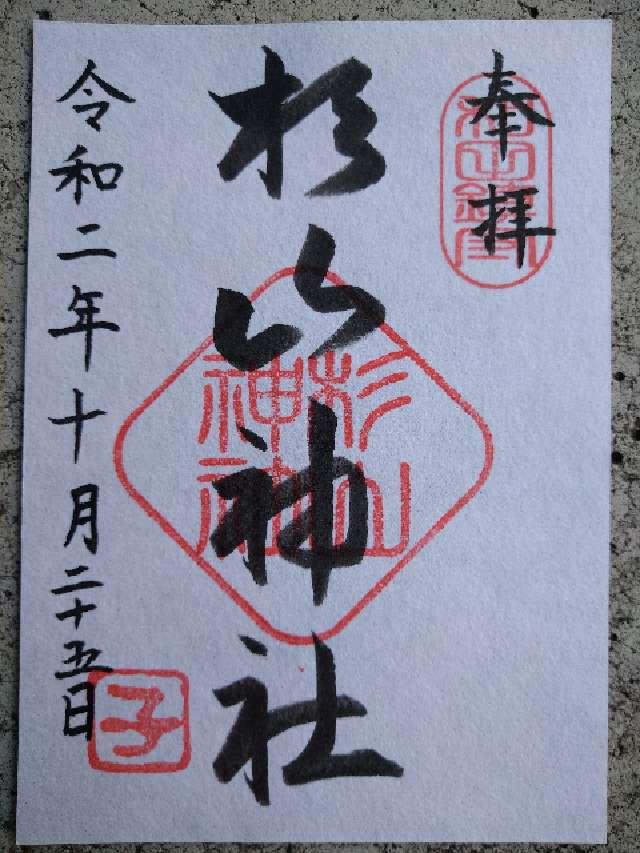 奉拝
杉山神社
杉山
神社
令和二年十月二十五日
子